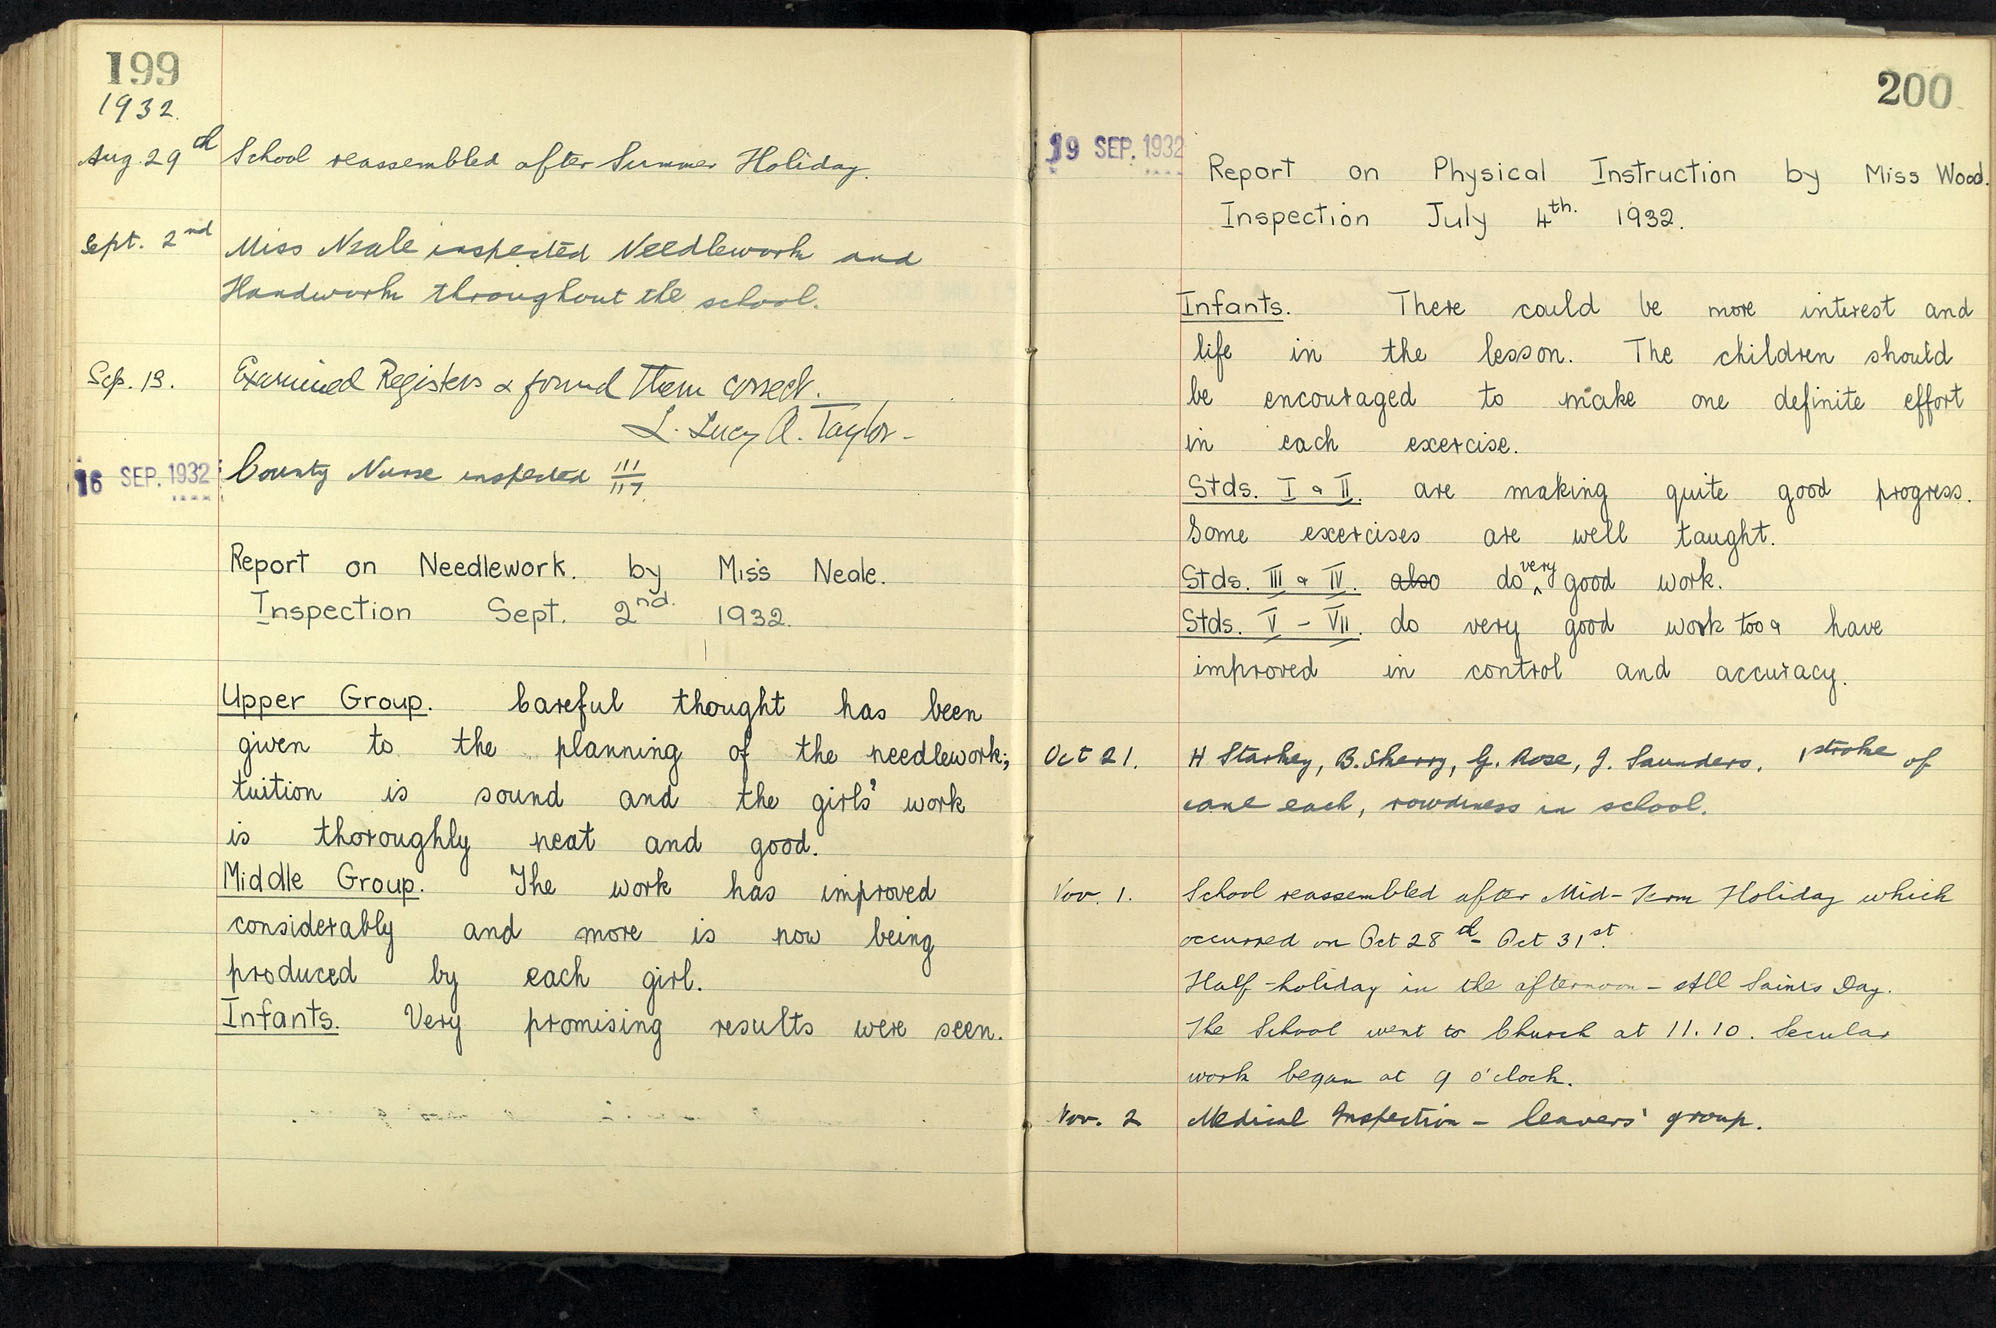 199
1932.
Aug. 29th School reassembled after Summer Holiday.
Sept. 2nd Miss Neale inspected Needlework and
Handwork throughout the school.
Sep. 13. Examined Registers & found them correct.
L. Lucy A. Taylor
16 SEP. 1932 County Nurse inspected 111/117
Report on Needlework. by Miss Neale.
Inspection Sept. 2nd. 1932.
Upper Group. Careful thought has been
given to the planning of the needlework;
tuition is sound and the girls' work
is thoroughly neat and good.
Middle Group. The work has improved
considerably and more is now being
produced by each girl.
Infants. Very promising results were seen.
200
19 SEP. 1932
Report on Physical Instruction by Miss Wood.
Inspection July 4th. 1932.
Infants. There could be more interest and
life in the lesson. The children should
be encouraged to make one definite effort
in each exercise.
Stds. I & II. are making quite good progress.
Some exercises are well taught.
Stds. III & IV. also do very good work.
Stds. V - VII. do very good work too & have
improved in control and accuracy.
Oct 21. H Starkey, B. Sherry, G. Rose, J. Saunders, 1 stroke of
cane each, rowdiness in school.
Nov. 1. School reassembled after Mid-Term Holiday which
occurred on Oct 28th - Oct 31st.
Half-holiday in the afternoon - All Saints Day.
The School went to Church at 11.10. Secular
work began at 9 o'clock.
Nov. 2 Medical Inspection - leavers' group.